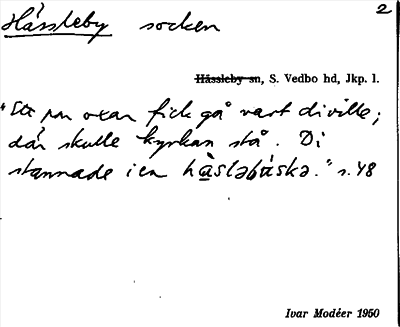 Hässleby socken 2
Hässleby sn, S. Vedbo hd, Jkp. l.
"Ett par oxar fick gå vart di ville;
där skulle kyrkan stå. Di
stannade i en hàsləbáskə." s. 48
Ivar Modéer 1950